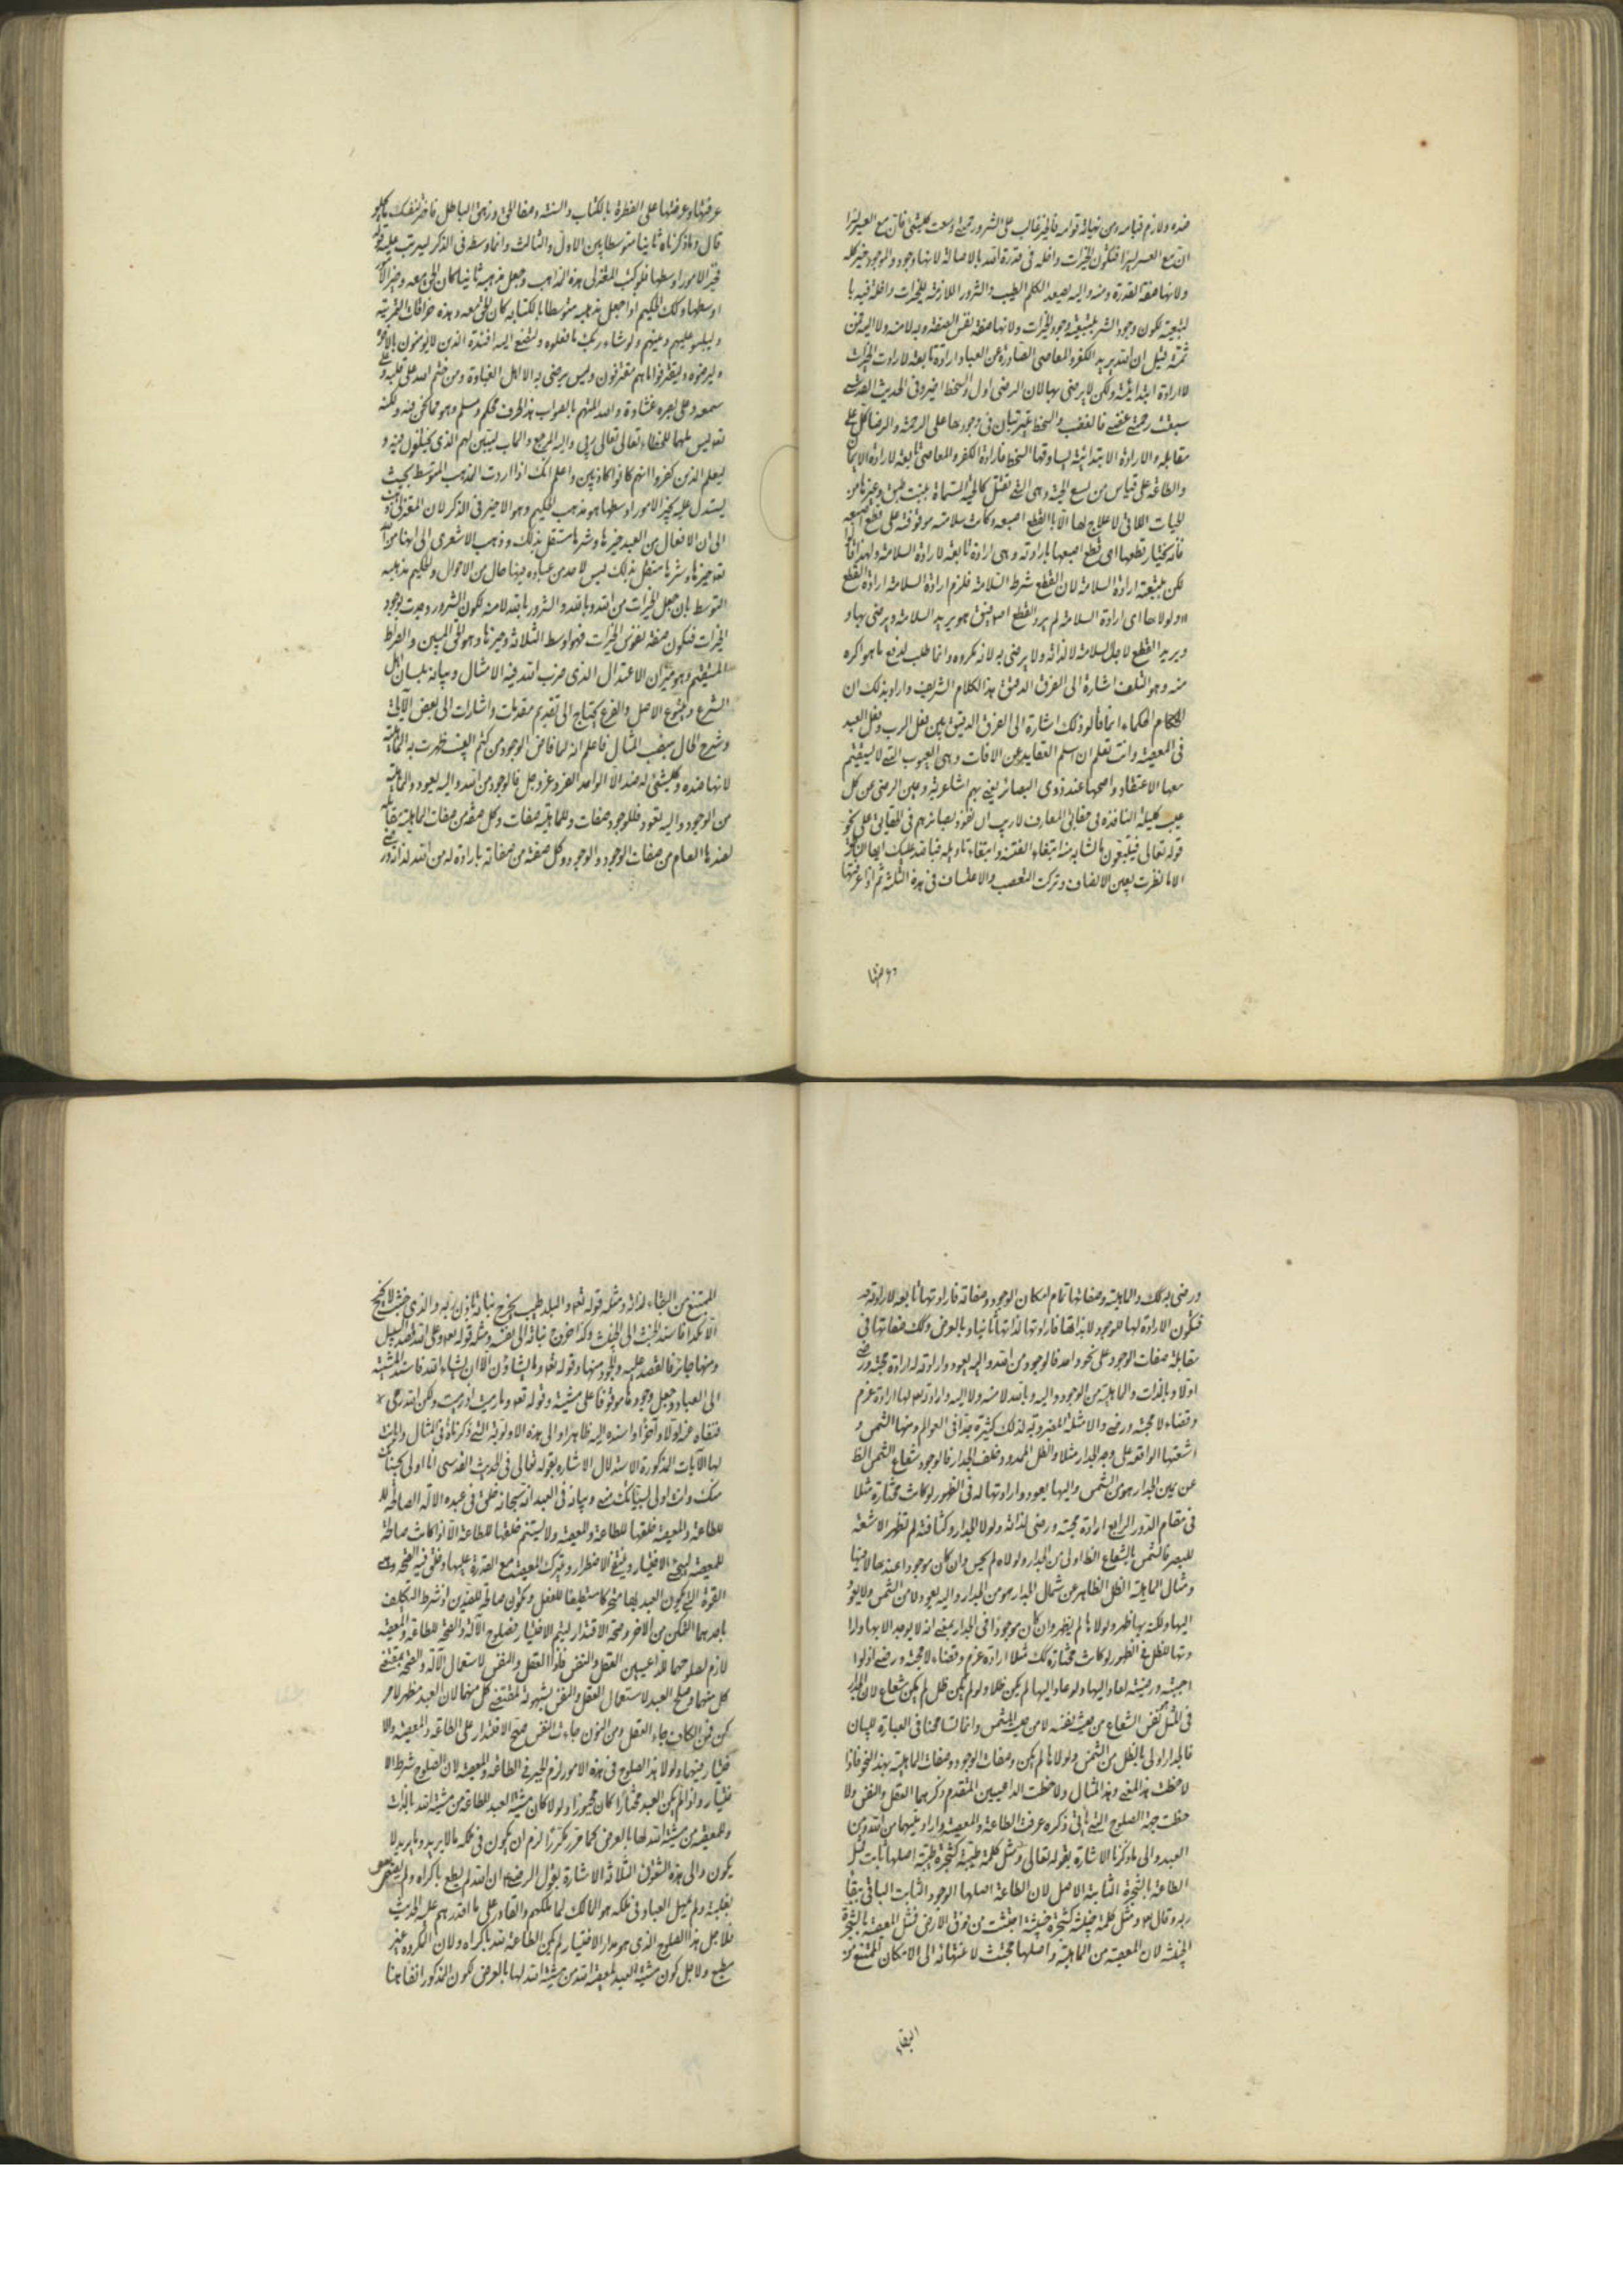 ضده ولازم قيامه ومن نهاية قوامه فالخير غالب على الشرور رحمتي وسعت كل شئ فان مع العسر يسرا
ان مع العسر يسرا فتكون الخيرات داخله في قدرة الله بالاصالة لانها وجود والموجود خير كله
ولانها صفة القدرة ومنه واليه يصعد الكلم الطيب والشرور اللازمة للخيرات داخلة فيه با
لتبعية لكون وجود الشر بتبعية وجود الخيرات ولانها صفة نفس الصفة وبه لا منه ولا اليه فمن
ثمة قيل ان الله يريد الكفر والمعاصي الصادرة عن العباد ارادة تابعة لارادت الخيرات
لا ارادة ابتدائية ولكن لا يرضى بها لان الرضى اول والسخط اخير وفي الحديث القدسي
سبقت رحمتي غضبي فالغضب والسخط مترتبان في وجودهما على الرحمة والرضا كل على
مقابله والارادة الابتدائية يساوقها السخط فارادة الكفر والمعاصي تابعة لارادة الايمان
والطاعة على قياس من لسع الحية وهي التي تقتل كالحية المسماة ببنت طبق وغيرها من
الحيات اللاتي لا علاج لها الا بالقطع اصبعه وكانت سلامته موقوفة على قطع اصبعه
فانه يختار قطعها اي قطع اصبعها بارادته وهي ارادة تابعة لارادة السلامة ولهذا قال
لكن بتبعية ارادة السلامة لان القطع شرط السلامة فلزم ارادة السلامة ارادة القطع
ولولاها اي ارادة السلامة لم يرد القطع اصلا فيق هو يريد السلامة ويرضى بها و
ويريد القطع لاجل السلامة لا لذاته ولا يرضى به لانه مكروه وانما طلب لدفع ما هو اكره
منه وهو التلف اشارة الى الفرق الدقيق هذا الكلام الشريف واراد بذلك ان
الحكماء انما قالوا ذلك اشارة الى الفرق الدقيق بين فعل الرب وفعل العبد
في المعصية وانت تعلم ان اسلم العقايد من الافات وهي العيوب التي لا يستقيم
معها الاعتقاد واصحها عند ذوي البصائر يعني بهم اشاعرية وعين الرضى عن كل
عيب كليلة النافذه في حقائق المعارف لا ريب ان نفوذ بصائرهم في الحقائق على نحو
قوله تعالى فيتبعون ما تشابه منه ابتغاء الفتنة وابتغاء تاويله فبالله عليك ايها الناظر
الا ما نظرت بعين الانصاف وتركت التعصب والاعتساف في هذه الثلثة ثم اذا عرفتها
وعرضتها
عرفتها وعرضتها على الفطرة بالكتاب والسنة وصفا الحق وزهق الباطل فاختر لنفسك ما يحلو
قال وما ذكرناه ثانيا متوسطا بين الاول والثالث وانما وسطه في الذكر ليرتب عليه قوله
فخير الامور اوسطها فلو كتب المعتزلي هذه المذاهب وجعل مذهبه ثانيا لكان الحق معه وخير الامور
اوسطها وكذلك الحكيم اذا جعل مذهبه متوسطا بالكتابة كان الحق معه وهذه خرافات الحزبية
وليلبسوا عليهم دينهم ولو شاء ربك ما فعلوه ولتصغى اليه افئدة الذين لا يؤمنون بالاخرة
وليرضوه وليقترفوا ما هم مقترفون وليس يرضى به الا اهل الغباوة ومن ختم الله على قلبه وعلى
سمعه وعلى بصره غشاوة والله الملهم بالصواب هذا طرف محكم ومسلم وهو مما نحن فيه ولكنه
تعه ليس ملهما للخطاء تعالى تعالى ربي واليه المرجع والماب ليبين لهم الذي يختلفون فيه و
ليعلم الذين كفروا انهم كانوا كاذبين واعلم انك اذا اردت المذهب المتوسط بحيث
يستدل عليه بخير الامور اوسطها هو مذهب الحكيم وهو الاخير في الذكر لان المعتزلي ذهب
الى ان الافعال من العبد خيرها وشرها مستقل بذلك وذهب الاشعري الى انها من الله
تعه خيرها وشرها مستقل بذلك ليس لاحد من عباده فيها حال من الاحوال والحكيم مذهبه
المتوسط بان جعل الخيرات من الله وبالله والشرور بالله لا منه لكون الشرور وجدت بوجود
الخيرات فتكون صفة نفوس الخيرات فهو اوسط الثلاثة وخيرها وهو الحق المبين والصراط
المستقيم وهو ميزان الاعتدال الذي ضرب الله فيه الامثال وبيانه بلسان اهل
الشرع والمتبوع الاصل والفرع يحتاج الى تقديم مقدمات واشارات الى بعض الآيات
وشرح الحال بضرب المثال فاعلم انه لما فاض الوجود من كتم الغيب ظهرت به الماهية
لانها ضده ولكل شئ له ضد الا الواحد الفرد عز وجل فالوجود من الله واليه يعود والماهية
من الوجود واليه تعود فللوجود صفات وللماهية صفات وكل صفة من صفات الماهية يقابله
لضدها العام من صفات الوجود والوجود وكل صفة من صفاته بارادة له من الله لذاته ورضى
ورضى به كذلك والماهية وصفاتها تمام امكان الوجود وصفاته فارادتها تابعة لارادته
فتكون الارادة لها للوجود لا بذاتها فارادتها لذاتها ثانيا وبالعرض وكذلك صفاتها في
مقابلة صفات الوجود على نحو واحد فالوجود من الله واليه يعود وارادته له ارادة محبة ورضى
اولا وبالذات والماهية من الوجود واليه وبالله لا منه ولا اليه وارادته لها ارادة عزم
وقضاء لا محبة ورضى والامثلة المضروبة لذلك كثيرة جدا في العوالم ومنها الشمس و
اشعتها الواقعة على وجه الجدار مثلا والظل الممدود خلف الجدار فالوجود شعاع الشمس الظ
عن يمين الجدار هو من الشمس واليها يعود وارادتها له في الظهور لو كانت مختارة مثلا
في مقام الدور الرابع ارادة محبة ورضى لذاته ولولا الجدار وكثافته لم تظهر الاشعة
للبصر فالشمس بالشعاع الظ اولى من الجدار ولولاه لم يحس وان كان موجودا عندها لا منها
ومثال الماهية الظل الظاهر عن شمال الجدار هو من الجدار واليه يعود لا من الشمس ولا يعود
اليها ولكنه بها ظهر ولولاها لم يظهر وان كان موجودا في الجدار بمعنى انه لا يوجد الا بها وارا
دتها للظل في الظهور لو كانت مختارة كذلك مثلا ارادة عزم وقضاء لا محبة ورضى اذ لو
احبته ورضيته لعاد اليها ولو عاد اليها لم يكن ظلا ولو لم يكن ظل لم يكن شعاع لان الجدار
في المثل كنفس الشعاع من حيث نفسه لا من حيث الشمس وانما تسامحنا في العبارة للبيان
فالجدار اولى بالظل من الشمس ولولاها لم يكن وصفات الوجود وصفات الماهية بهذا النحو فاذا
لاحظت هذا المعنى وهذا المثال ولاحظت الداعيين المتقدم ذكرهما العقل والنفس ولا
حظت جهة الصلوح التي ياتي ذكره عرفت الطاعة والمعصية وارادتيهما من الله ومن
العبد والى ما ذكرنا الاشارة بقوله تعالى ومثل كلمة طيبة كشجرة طيبة اصلها ثابت فمثل
الطاعة بالشجرة الثابتة الاصل لان الطاعة اصلها الوجود الثابت الباقي ببقا
ربه وقال تعه ومثل كلمة خبيثة كشجرة خبيثة اجتثت من فوق الارض فمثل المعصية بالشجرة
الخبيثة لان المعصية من الماهية واصلها مجتث لاستهانه الى الامكان الممتنع من
البقاء
الممتنع من البقاء لذاته ومثله قوله تعه والبلد الطيب يخرج نباته باذن ربه والذي خبث لا يخرج
الا نكدا فاسند الخبث الى الخبيث وكذا خروج نباته الى نفسه ومثله قوله تعه وعلى الله قصد السبيل
ومنها جائر فالقصد عليه والجور منها وقوله تعه وما تشاؤن الا ان يشاء الله فاسند المشية
الى العباد وجعل وجودها موقوفا على مشيته وقوله تعه وما رميت اذ رميت ولكن الله رمى
فنفاه عنه اولا وآخرا واسنده اليه ظاهرا والى هذه الاولوية التي ذكرناه في المثال والمثبت
لها الآيات المذكورة الاستدلال الاشارة بقوله تعالى في الحديث القدسي انا اولى بحسناتك
منك وانت اولى بسيئاتك مني وبيانه في العبد انه سبحانه خلق في عبده الآلة الصالحة
للطاعة والمعصية خلقها للطاعة والمعصية ولا يستتم خلقها للطاعة الا اذا كانت صالحة
للمعصية ليصح الاختيار وينتفي الاضطرار ويترك المعصية مع القدرة عليها وخلق فيه الصحة وهي
القوة التي يكون العبد بها متحركا مستطيعا للفعل وتكون صالحة للضدين اذ شرط التكليف
باحدهما التمكن من الاخر وصحة الاقتدار ليتم الاختيار فصلوح الآلة والصحة للطاعة والمعصية
لازم لصلوحهما للداعيين العقل والنفس فلولا العقل والنفس لاستعمال الآلة والصحة بمقتضى
كل منهما وصلح العبد لاستعمال العقل والنفس بشهوة لمقتضى كل منهما لان العبد مظهر لامر
كن فمن الكاف جاء العقل ومن النون جاءت النفس صح الاقتدار على الطاعة والمعصية والا
ختيار فيهما ولولا هذا الصلوح في هذه الامور لزم الجبر في الطاعة والمعصية لان الصلوح شرط الا
ختيار واذا لم يكن العبد مختارا كان مجبورا ولو لا كان مشية العبد للطاعة من مشية الله بالذات
وللمعصية من مشية الله لها بالعرض كما مر تكررا لزم ان يكون في ملكه ما لا يريد وما يريد لا
يكون والى هذه الشقوق الثلاثة الاشارة بقول الرضا ان الله لم يطع باكراه ولم يعص
بغلبة ولم يهمل العباد في ملكه هو المالك لما ملكهم والقادر على ما اقدرهم عليه الحديث
فلاجل هذا الصلوح الذي هو مدار الاختيار لم يكن الطاعة لله باكراه ولان المكروه غير
مطيع ولاجل كون مشية العبد لمعصية الله من مشية الله لها بالعرض لكون المذكور انفا هنا